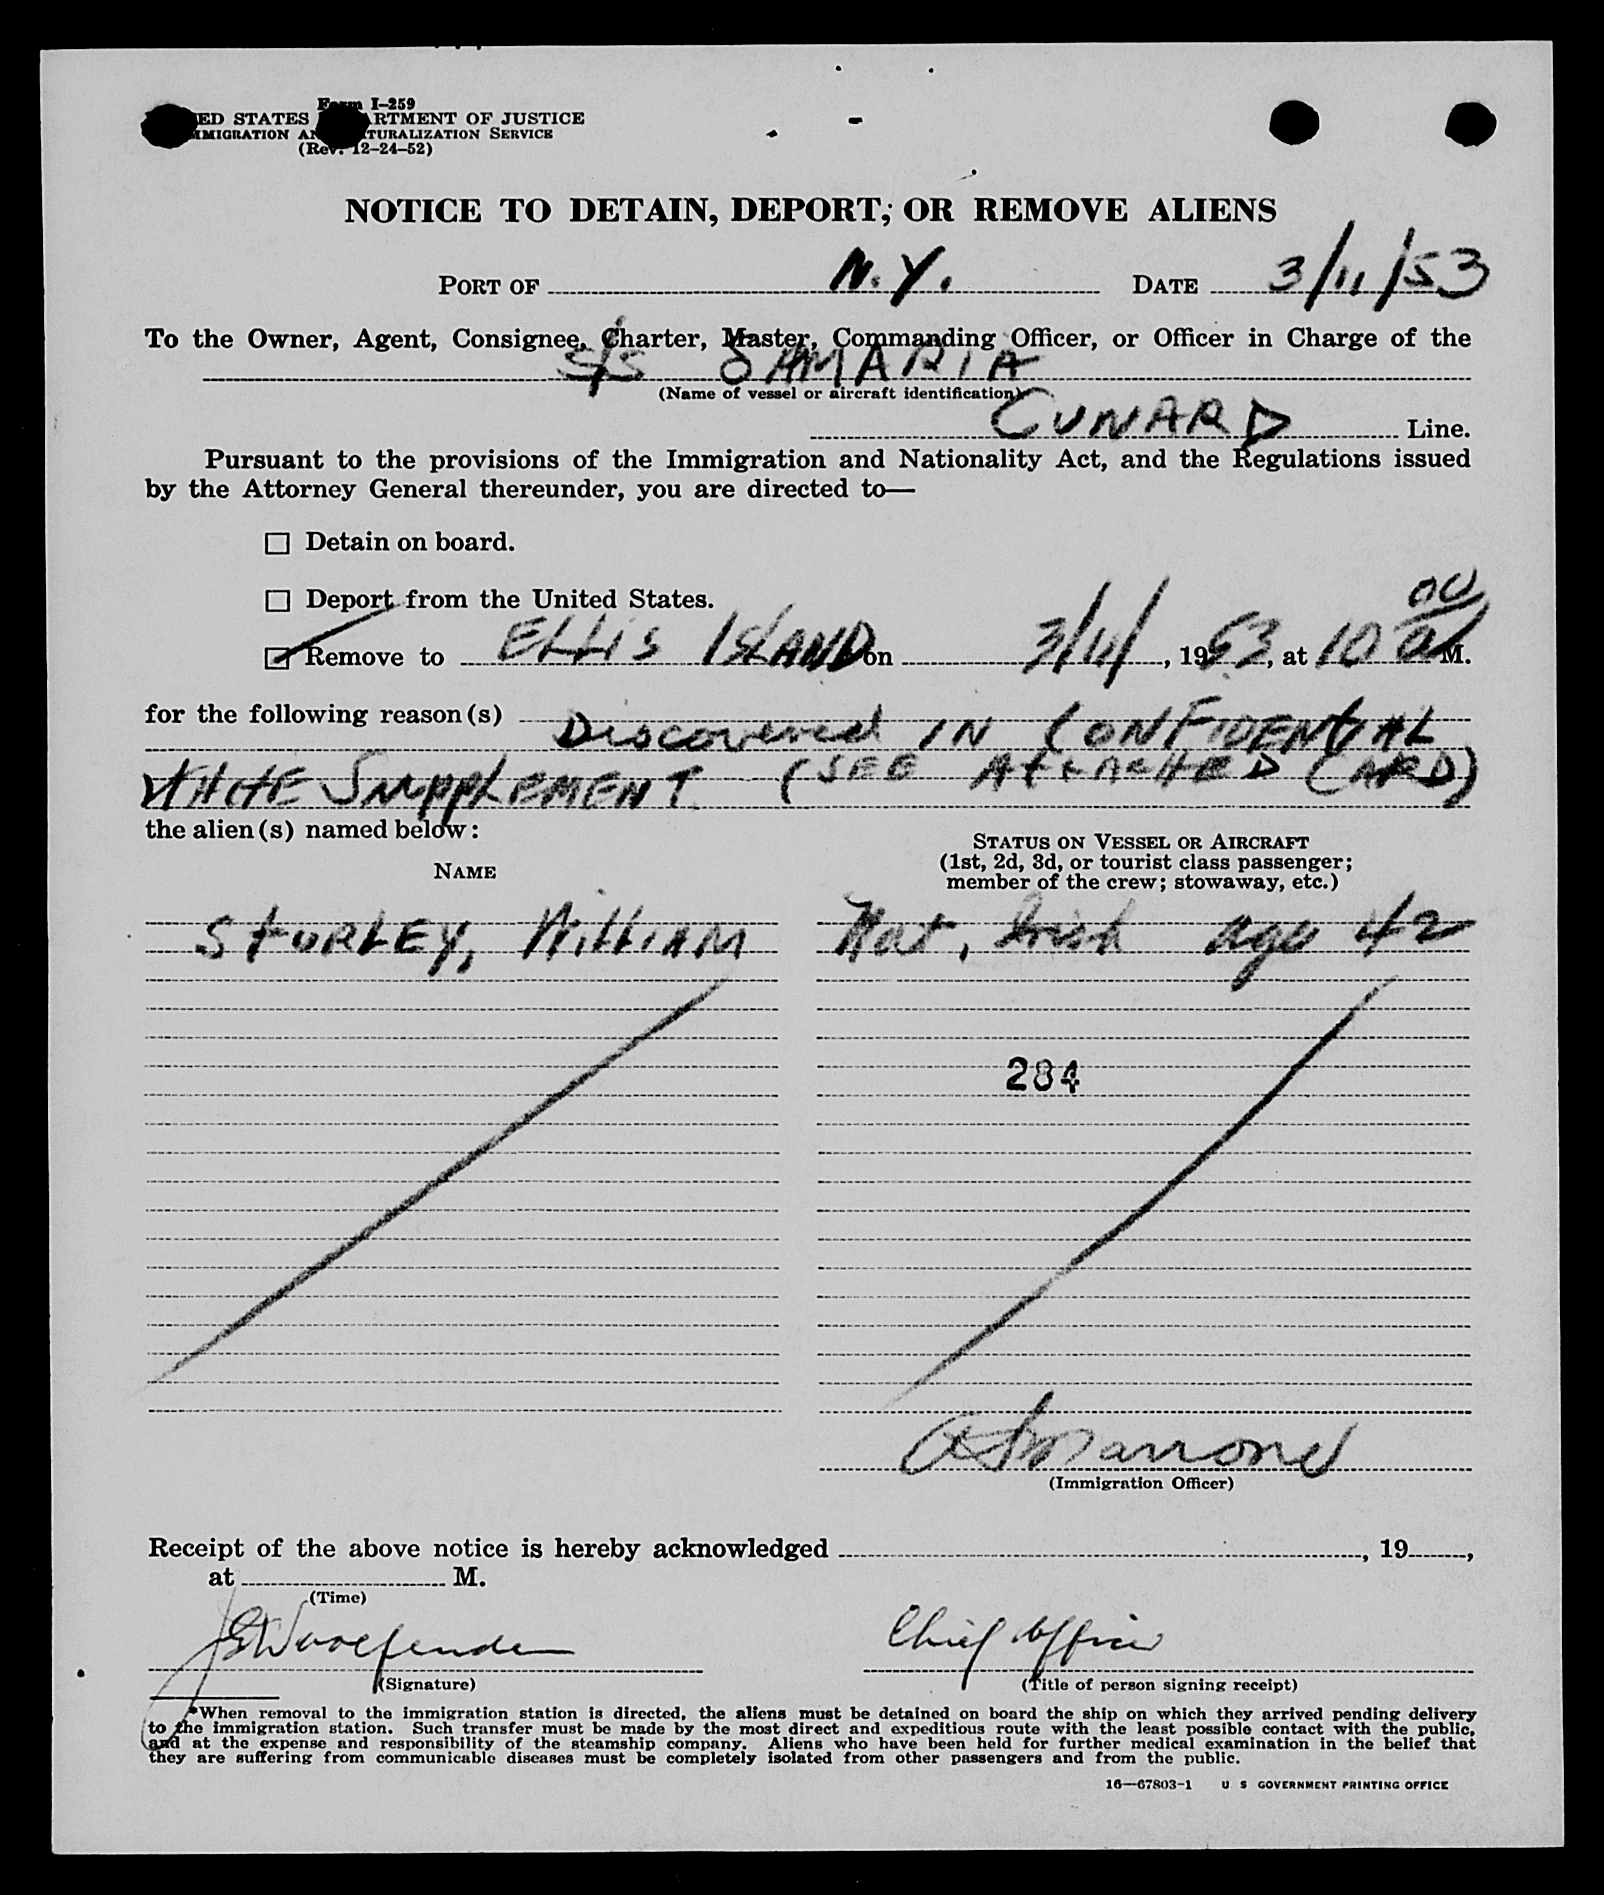 Form I-259
UNITED STATES DEPARTMENT OF JUSTICE
IMMIGRATION AND NATURALIZATION SERVICE
(Rev. 12-24-52)
NOTICE TO DETAIN, DEPORT, OR REMOVE ALIENS
PORT OF N.Y. DATE 3/11/53
To the Owner, Agent, Consignee, Charter, Master, Commanding Officer, or Officer in Charge of the
S/S SAMARIA
(Name of vessel or aircraft identification)
CUNARD Line.
Pursuant to the provisions of the Immigration and Nationality Act, and the Regulations issued
by the Attorney General thereunder, you are directed to—
☐ Detain on board.
☐ Deport from the United States.
☑ Remove to ELLIS ISLAND on 3/11/, 1953, at 10 00 a M.
for the following reason(s) Discovered IN CONFIDENTIAL
WHITE SUPPLEMENT (SEE ATTACHED CARD)
the alien(s) named below:
NAME
STATUS ON VESSEL OR AIRCRAFT
(1st, 2d, 3d, or tourist class passenger;
member of the crew; stowaway, etc.)
STURLEY, WILLIAM Nat, Irish age 42
284
(Immigration Officer)
Receipt of the above notice is hereby acknowledged , 19 ,
at M.
(Time)
Chief Officer
(Signature) (Title of person signing receipt)
*When removal to the immigration station is directed, the aliens must be detained on board the ship on which they arrived pending delivery
to the immigration station. Such transfer must be made by the most direct and expeditious route with the least possible contact with the public,
and at the expense and responsibility of the steamship company. Aliens who have been held for further medical examination in the belief that
they are suffering from communicable diseases must be completely isolated from other passengers and from the public.
16—67803-1 U S GOVERNMENT PRINTING OFFICE